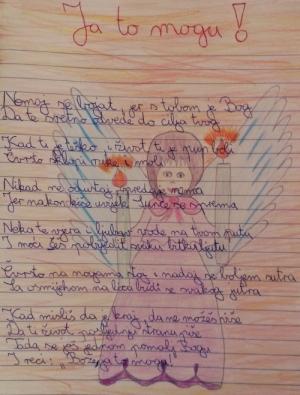 Ja to mogu!
Nemoj se bojat, jer s tobom je Bog
Da te sretno odvede do cilja tvog
Kad ti je teško, i život ti je pun boli
Čvrsto sklopi ruke i moli
Nikad ne odustaj, predaje nema
Jer nakon kiše uvijek Sunce se sprema
Neka te vjera i ljubav vode na tvom putu
I moći ćeš pobijediti svaku bitku
Čvrsto na nogama stoj i nadaj se boljem sutra
Sa osmjehom na licu budi se svakog jutra
Kad misliš da je kraj, da ne možeš više
Da ti život posljednju stranu piše
Tada se još jednom pomoli Bogu
I reci: „Bože, ja to mogu!